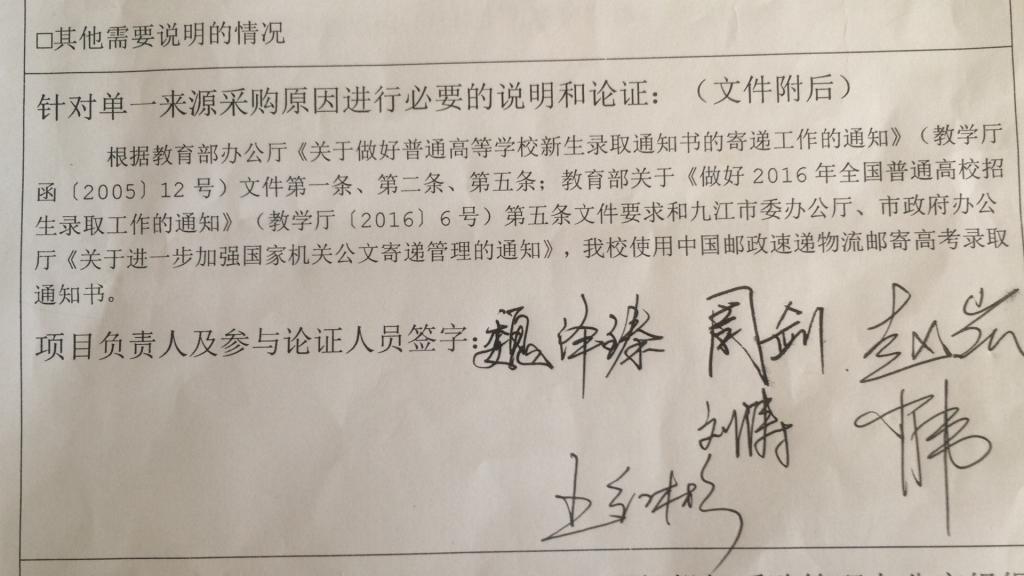 □其他需要说明的情况
针对单一来源采购原因进行必要的说明和论证：（文件附后）
根据教育部办公厅《关于做好普通高等学校新生录取通知书的寄递工作的通知》（教学厅
函〔2005〕12号）文件第一条、第二条、第五条；教育部关于《做好2016年全国普通高校招
生录取工作的通知》（教学厅〔2016〕6号）第五条文件要求和九江市委办公厅、市政府办公
厅《关于进一步加强国家机关公文寄递管理的通知》，我校使用中国邮政速递物流邮寄高考录取
通知书。
项目负责人及参与论证人员签字：魏泽臻 周剑 赵岚
刘腾